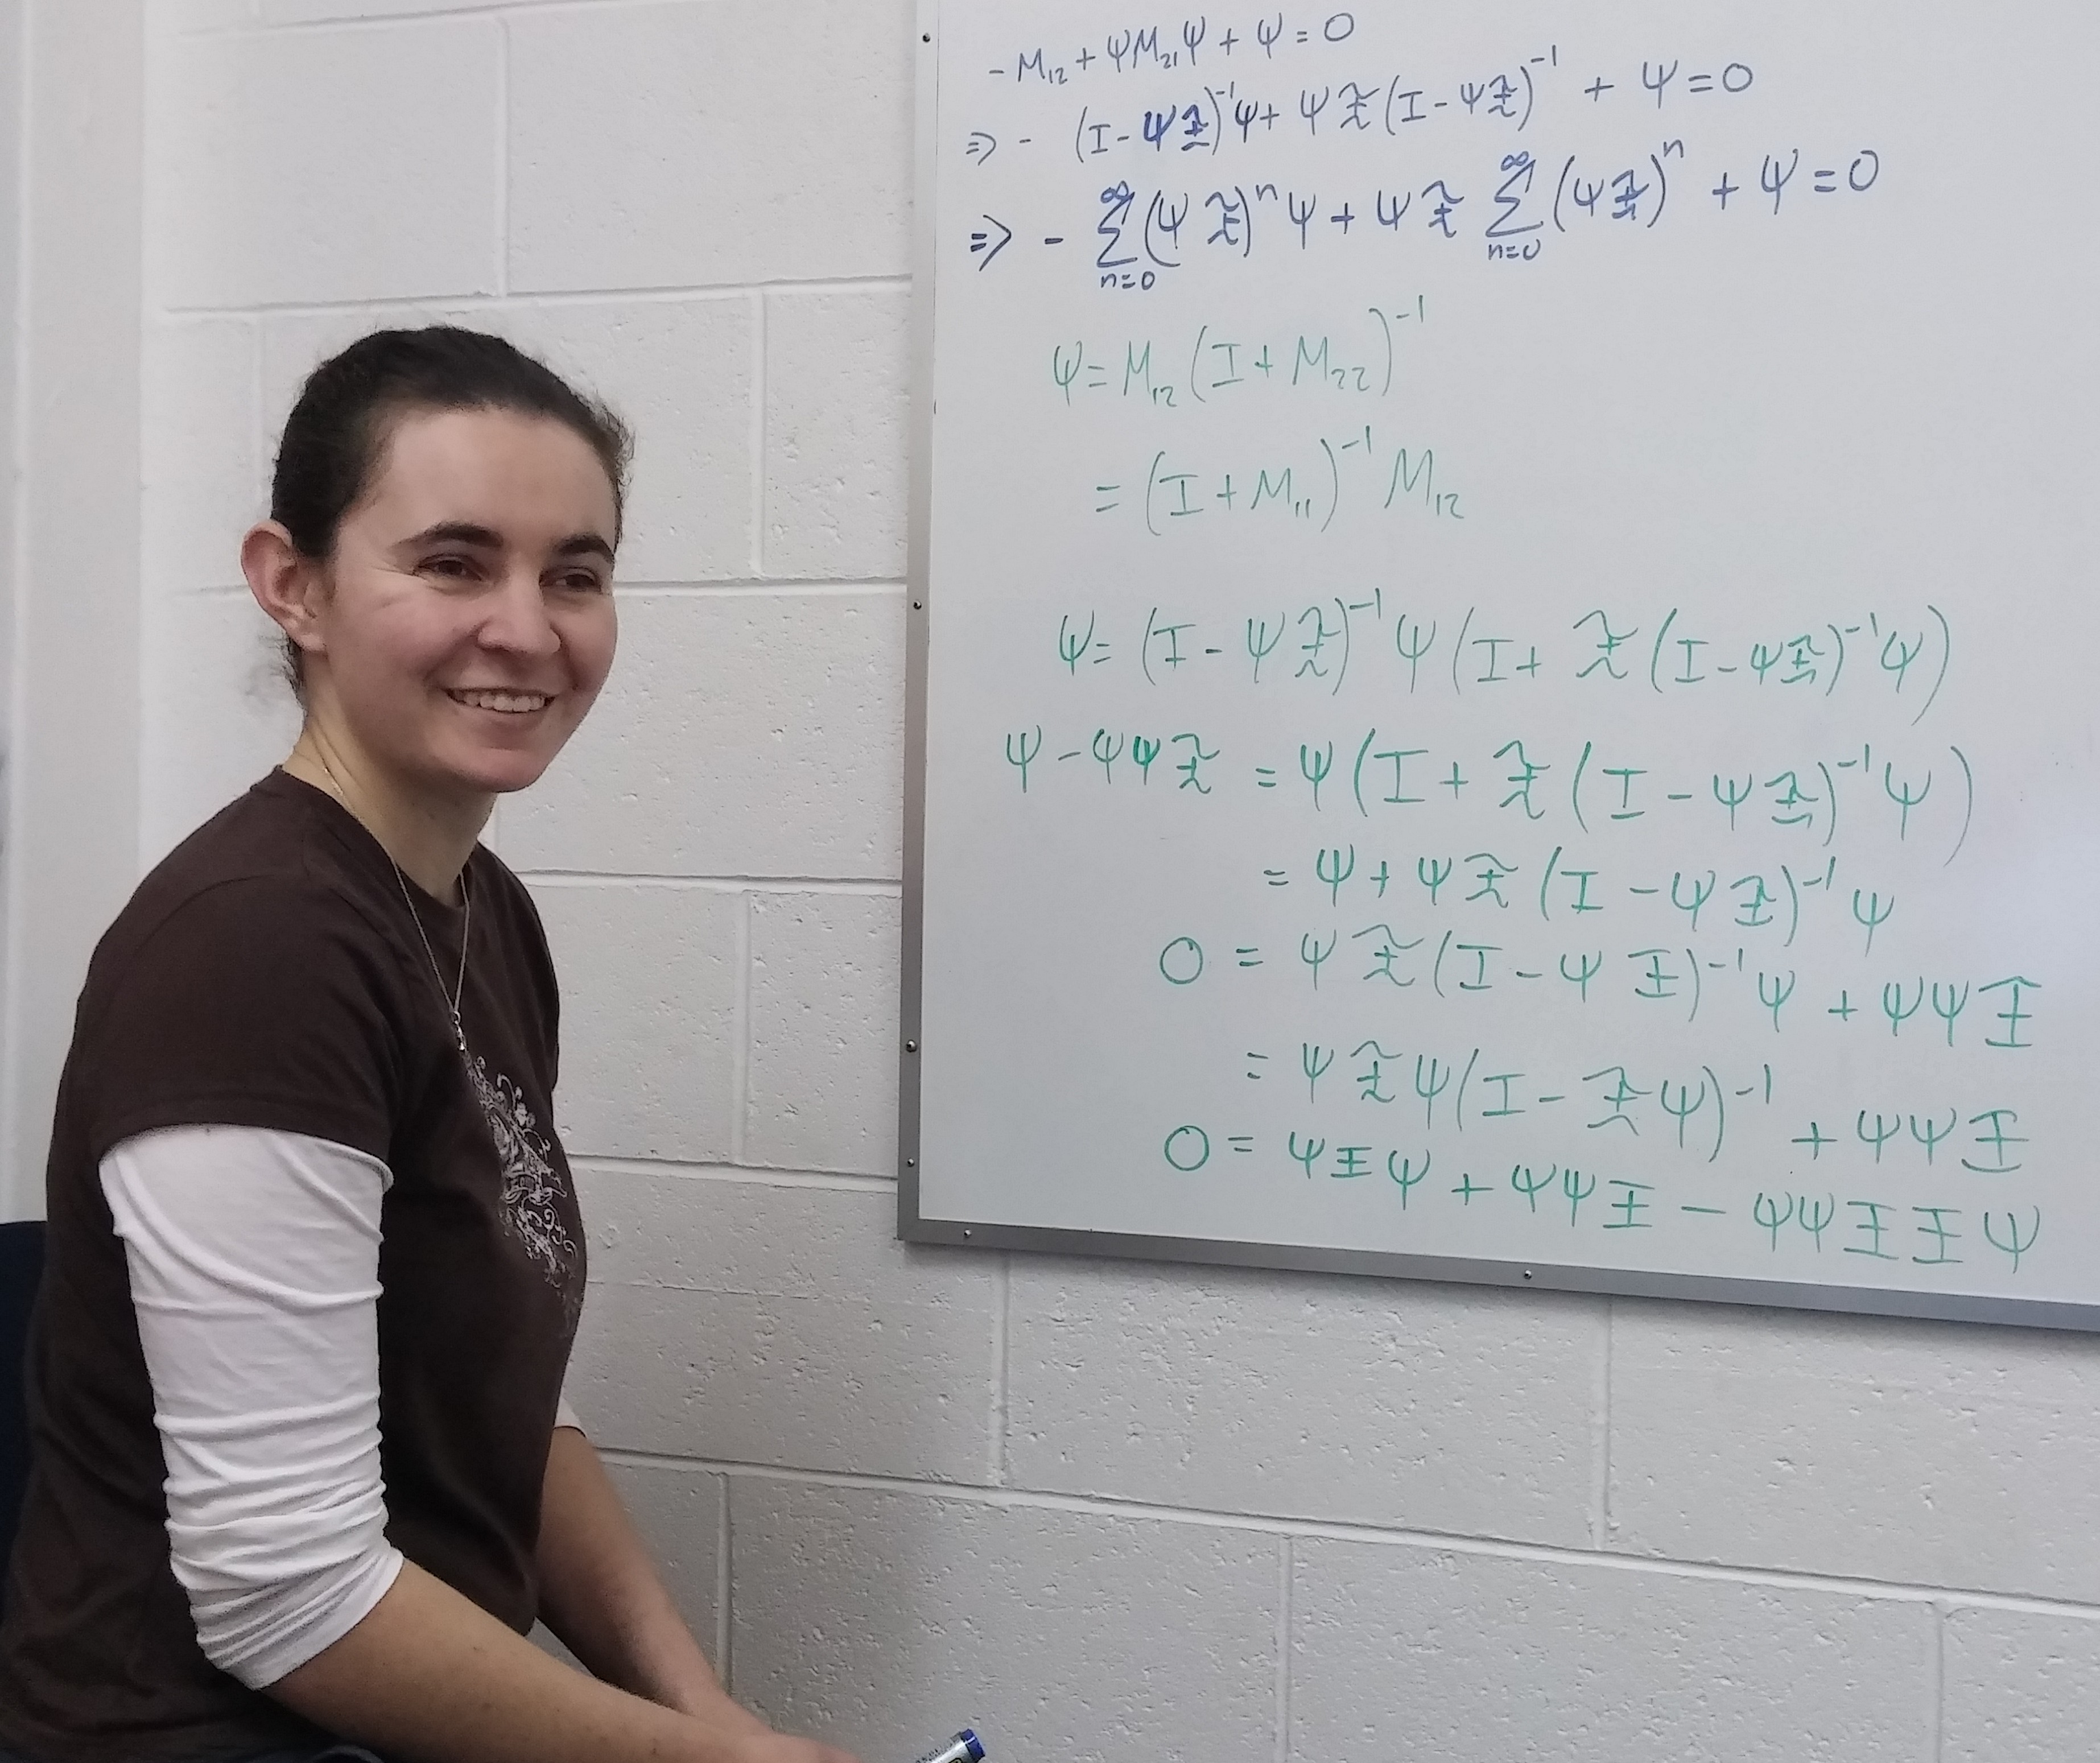 - M₁₂ + ΨM₂₁Ψ + Ψ = 0
⇒ - (I - ΨΞ̃)⁻¹Ψ + ΨΞ̃(I - ΨΞ̃)⁻¹ + Ψ = 0
⇒ - ∑ₙ₌₀^∞ (ΨΞ̃)ⁿΨ + ΨΞ̃ ∑ₙ₌₀^∞ (ΨΞ̃)ⁿ + Ψ = 0
Ψ = M₁₂(I + M₂₂)⁻¹
= (I + M₁₁)⁻¹ M₁₂
Ψ = (I - ΨΞ̃)⁻¹Ψ(I + Ξ̃(I - ΨΞ̃)⁻¹Ψ)
Ψ - ΨΨΞ̃ = Ψ(I + Ξ̃(I - ΨΞ̃)⁻¹Ψ)
= Ψ + ΨΞ̃(I - ΨΞ̃)⁻¹Ψ
0 = ΨΞ̃(I - ΨΞ)⁻¹Ψ + ΨΨΞ
= ΨΞ̃Ψ(I - Ξ̃Ψ)⁻¹ + ΨΨΞ
0 = ΨΞΨ + ΨΨΞ - ΨΨΞΞΨ